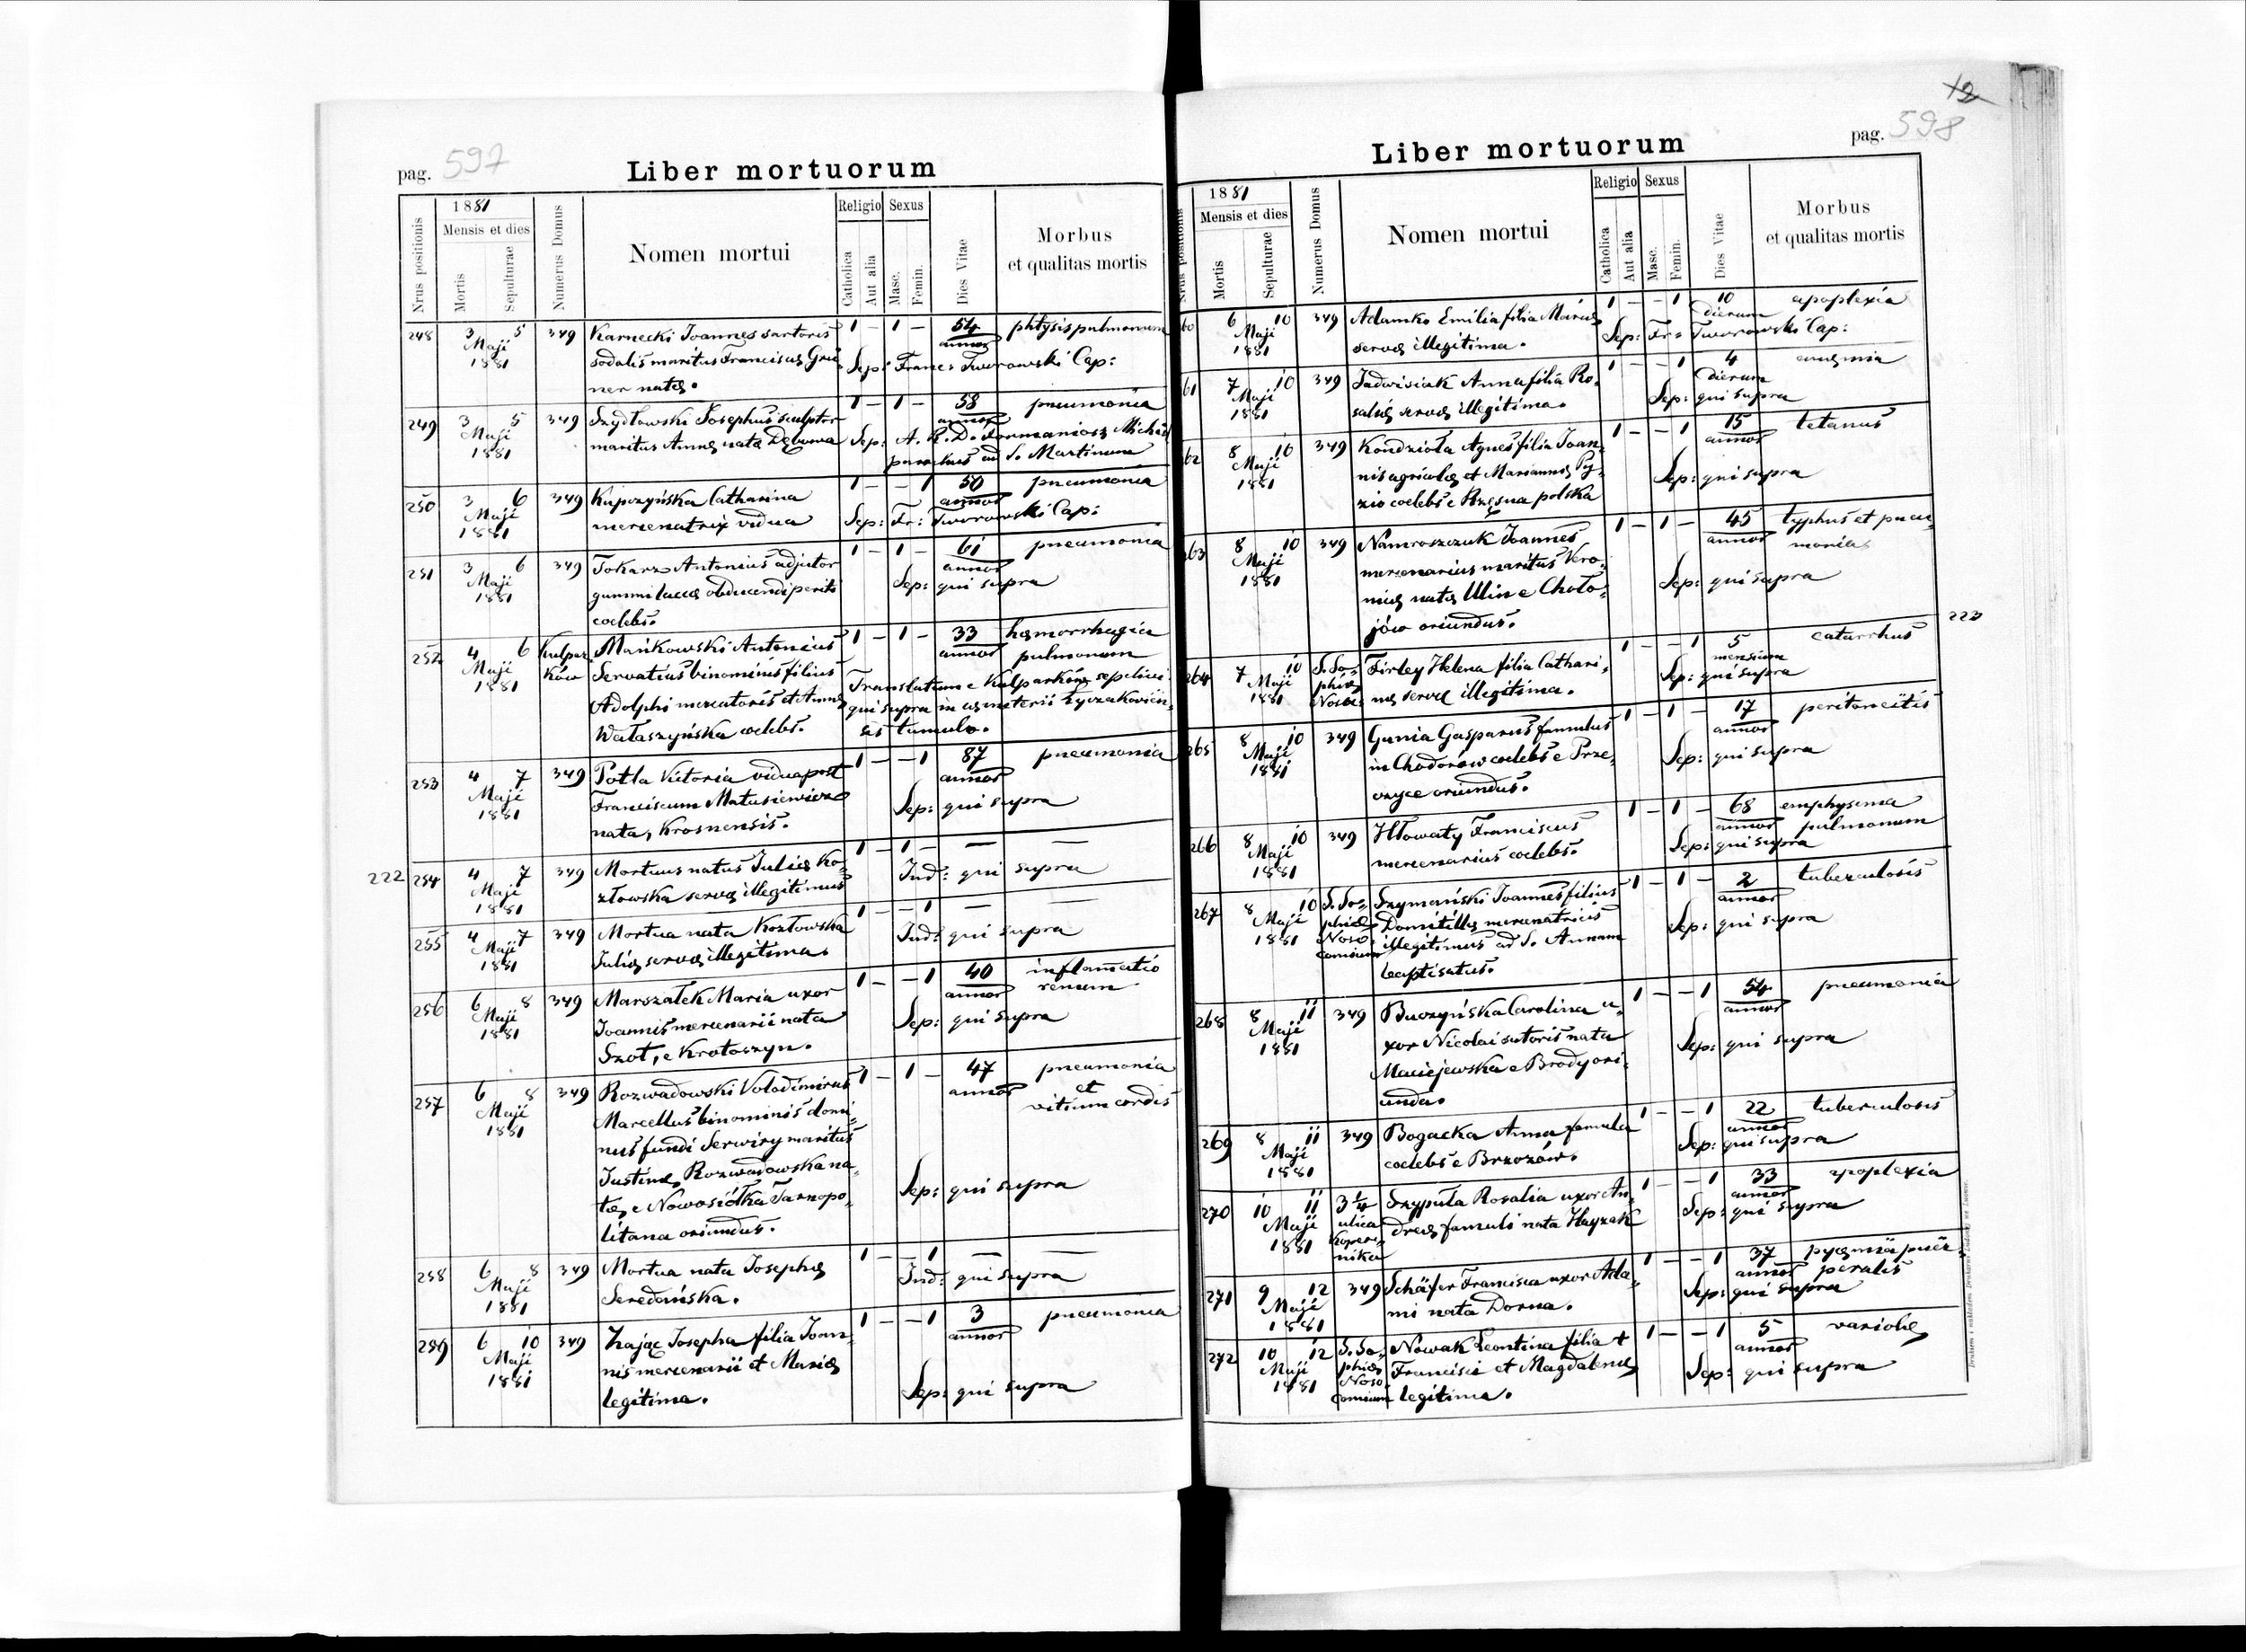 pag. 597
Liber mortuorum
Nrus positionis
1881
Mensis et dies
Mortis
Sepulturae
Numerus Domus
Nomen mortui
Religio
Catholica
Aut alia
Sexus
Masc.
Femin.
Dies Vitae
Morbus
et qualitas mortis
248 3 5 349 Karnecki Joannes sartoris 1 – 1 – 54 phtysis pulmonum
Maji sodalis maritus Franciscae annor
1881 ner natae. Sep: Franc: Tworowski Cap:
249 3 5 349 Szydłowski Josephus sculptor 1 – 1 – 58 pneumonia
Maji maritus Annae nata Dębowa annor
1881 Sep: A. R. D. Michael
parochus ad S. Martinum
250 3 6 349 Kupczyńska Catharina 1 – – 1 50 pneumonia
Maji mercenatrix vidua annor
1881 Sep: Fr: Tworowski Cap:
251 3 6 349 Tokarz Antonius adjutor 1 – 1 – 61 pneumonia
Maji gummi laccae obducendi periti annor
1881 coelebs. Sep: qui supra
252 4 6 Kulpar Mańkowski Antonius 1 – 1 – 33 haemorrhagia
Maji ków Servatius binominis filius annor pulmonum
1881 Adolphi mercatoris et Annae Translatum e Kulparków sepelivi
Wataszyńska coelebs. qui supra in coemeterii Łyczakovien
sis tumulo.
253 4 7 349 Potla Victoria vidua post 1 – – 1 87 pneumonia
Maji Franciscum Matusiewicz annor
1881 nata, Krosnensis. Sep: qui supra
222
254 4 7 349 Mortuus natus Juliae Ko 1 – 1 – — —
Maji złowska servae illegitimus Ind: qui supra
1881
255 4 7 349 Mortua nata Kozłowska 1 – – 1 — —
Maji Juliae servae illegitima. Ind: qui supra
1881
256 6 8 349 Marszałek Maria uxor 1 – – 1 40 inflamatio
Maji Joannis mercenarii nata annor renum
1881 Szot, e Krotoszyn. Sep: qui supra
257 6 8 349 Rozwadowski Volodimirus 1 – 1 – 47 pneumonia
Maji Marcellus binominis domi annor et
1881 nus fundi Serwiry maritus vitium cordis
Justinae Rozwadowska na
tae, e Nowosiółka Tarnopo Sep: qui supra
litana oriundus.
258 6 8 349 Mortua nata Josephae 1 – – 1 — —
Maji Seredańska. Ind: qui supra
1881
259 6 10 349 Zając Josepha filia Joan 1 – – 1 3 pneumonia
Maji nis mercenarii et Mariae annor
1881 legitima. Sep: qui supra
12
pag. 598
Liber mortuorum
Nrus positionis
1881
Mensis et dies
Mortis
Sepulturae
Numerus Domus
Nomen mortui
Religio
Catholica
Aut alia
Sexus
Masc.
Femin.
Dies Vitae
Morbus
et qualitas mortis
60 6 10 349 Adamko Emilia filia Mariae 1 – – 1 10 apoplexia
Maji servae illegitima. dierum
1881 Sep: Fr: Tworowski Cap:
61 7 10 349 Jadwisiak Anna filia Ro 1 – – 1 4 anaemia
Maji saliae servae illegitima. dierum
1881 Sep: qui supra
62 8 10 349 Kondzioła Agnes filia Joan 1 – – 1 15 tetanus
Maji nis agricolae et Mariannae Py annor
1881 zio coelebs e Rzęsna polska Sep: qui supra
263 8 10 349 Namroszczuk Joannes 1 – 1 – 45 typhus et pneu
Maji mercenarius maritus Vero annor monia
1881 nicae natae Ulin e Choło Sep: qui supra
jów oriundus.
223
264 7 10 S. So Firley Helena filia Cathari 1 – – 1 5 catarrhus
Maji phiae nae servae illegitima. mensium
1881 Noso Sep: qui supra
265 8 10 349 Gunia Gasparus famulus 1 – 1 – 17 peritoneitis
Maji in Chodorów coelebs e Prze annor
1881 czyce oriundus. Sep: qui supra
266 8 10 349 Hłowaty Franciscus 1 – 1 – 68 emphysema
Maji mercenarius coelebs. annor pulmonum
1881 Sep: qui supra
267 8 10 S. So Szymański Joannes filius 1 – 1 – 2 tuberculosis
Maji phiae Domitillae mercenatricis annor
1881 Noso illegitimus ad S. Annam Sep: qui supra
comium baptisatus.
268 8 11 349 Buczyńska Carolina u 1 – – 1 54 pneumonia
Maji xor Nicolai sutoris nata annor
1881 Maciejewska e Brody ori Sep: qui supra
unda.
269 8 11 349 Bogacka Anna famula 1 – – 1 22 tuberculosis
Maji coelebs e Brzozów. annor
1881 Sep: qui supra
270 10 11 3 1/4 Szypuła Rosalia uxor An 1 – – 1 33 apoplexia
Maji ulica dreae famuli nata Hayzak annor
1881 Koper Sep: qui supra
nika
271 9 12 349 Schäfer Francisca uxor Ada 1 – – 1 37 pyaemia puer
Maji mi nata Dorna. annor peralis
1881 Sep: qui supra
272 10 12 S. So Nowak Leontina filia 1 – – 1 5 variolae
Maji phiae Francisci et Magdalenae annor
1881 Noso legitima. Sep: qui supra
comium